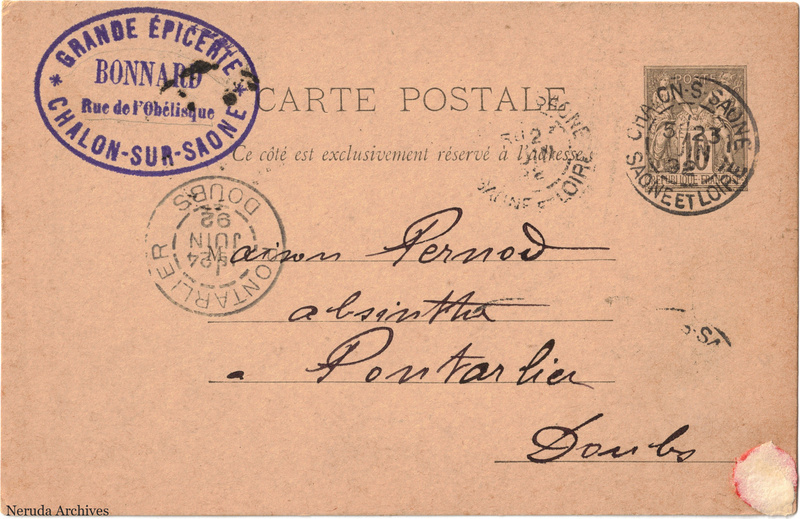 * GRANDE ÉPICERIE *
BONNARD
Rue de l'Obélisque
CHALON-SUR-SAONE
CARTE POSTALE
Ce côté est exclusivement réservé à l'adresse.
POSTE
10
RÉPUBLIQUE FRANÇAISE
CHALON-S-SAONE
23
JUIN
92
SAONE ET LOIRE
SAONE
LOIRE
PONTARLIER
24
JUIN
92
DOUBS
Maison Pernod
absinthe
a Pontarlier
Doubs
S-SA
Neruda Archives